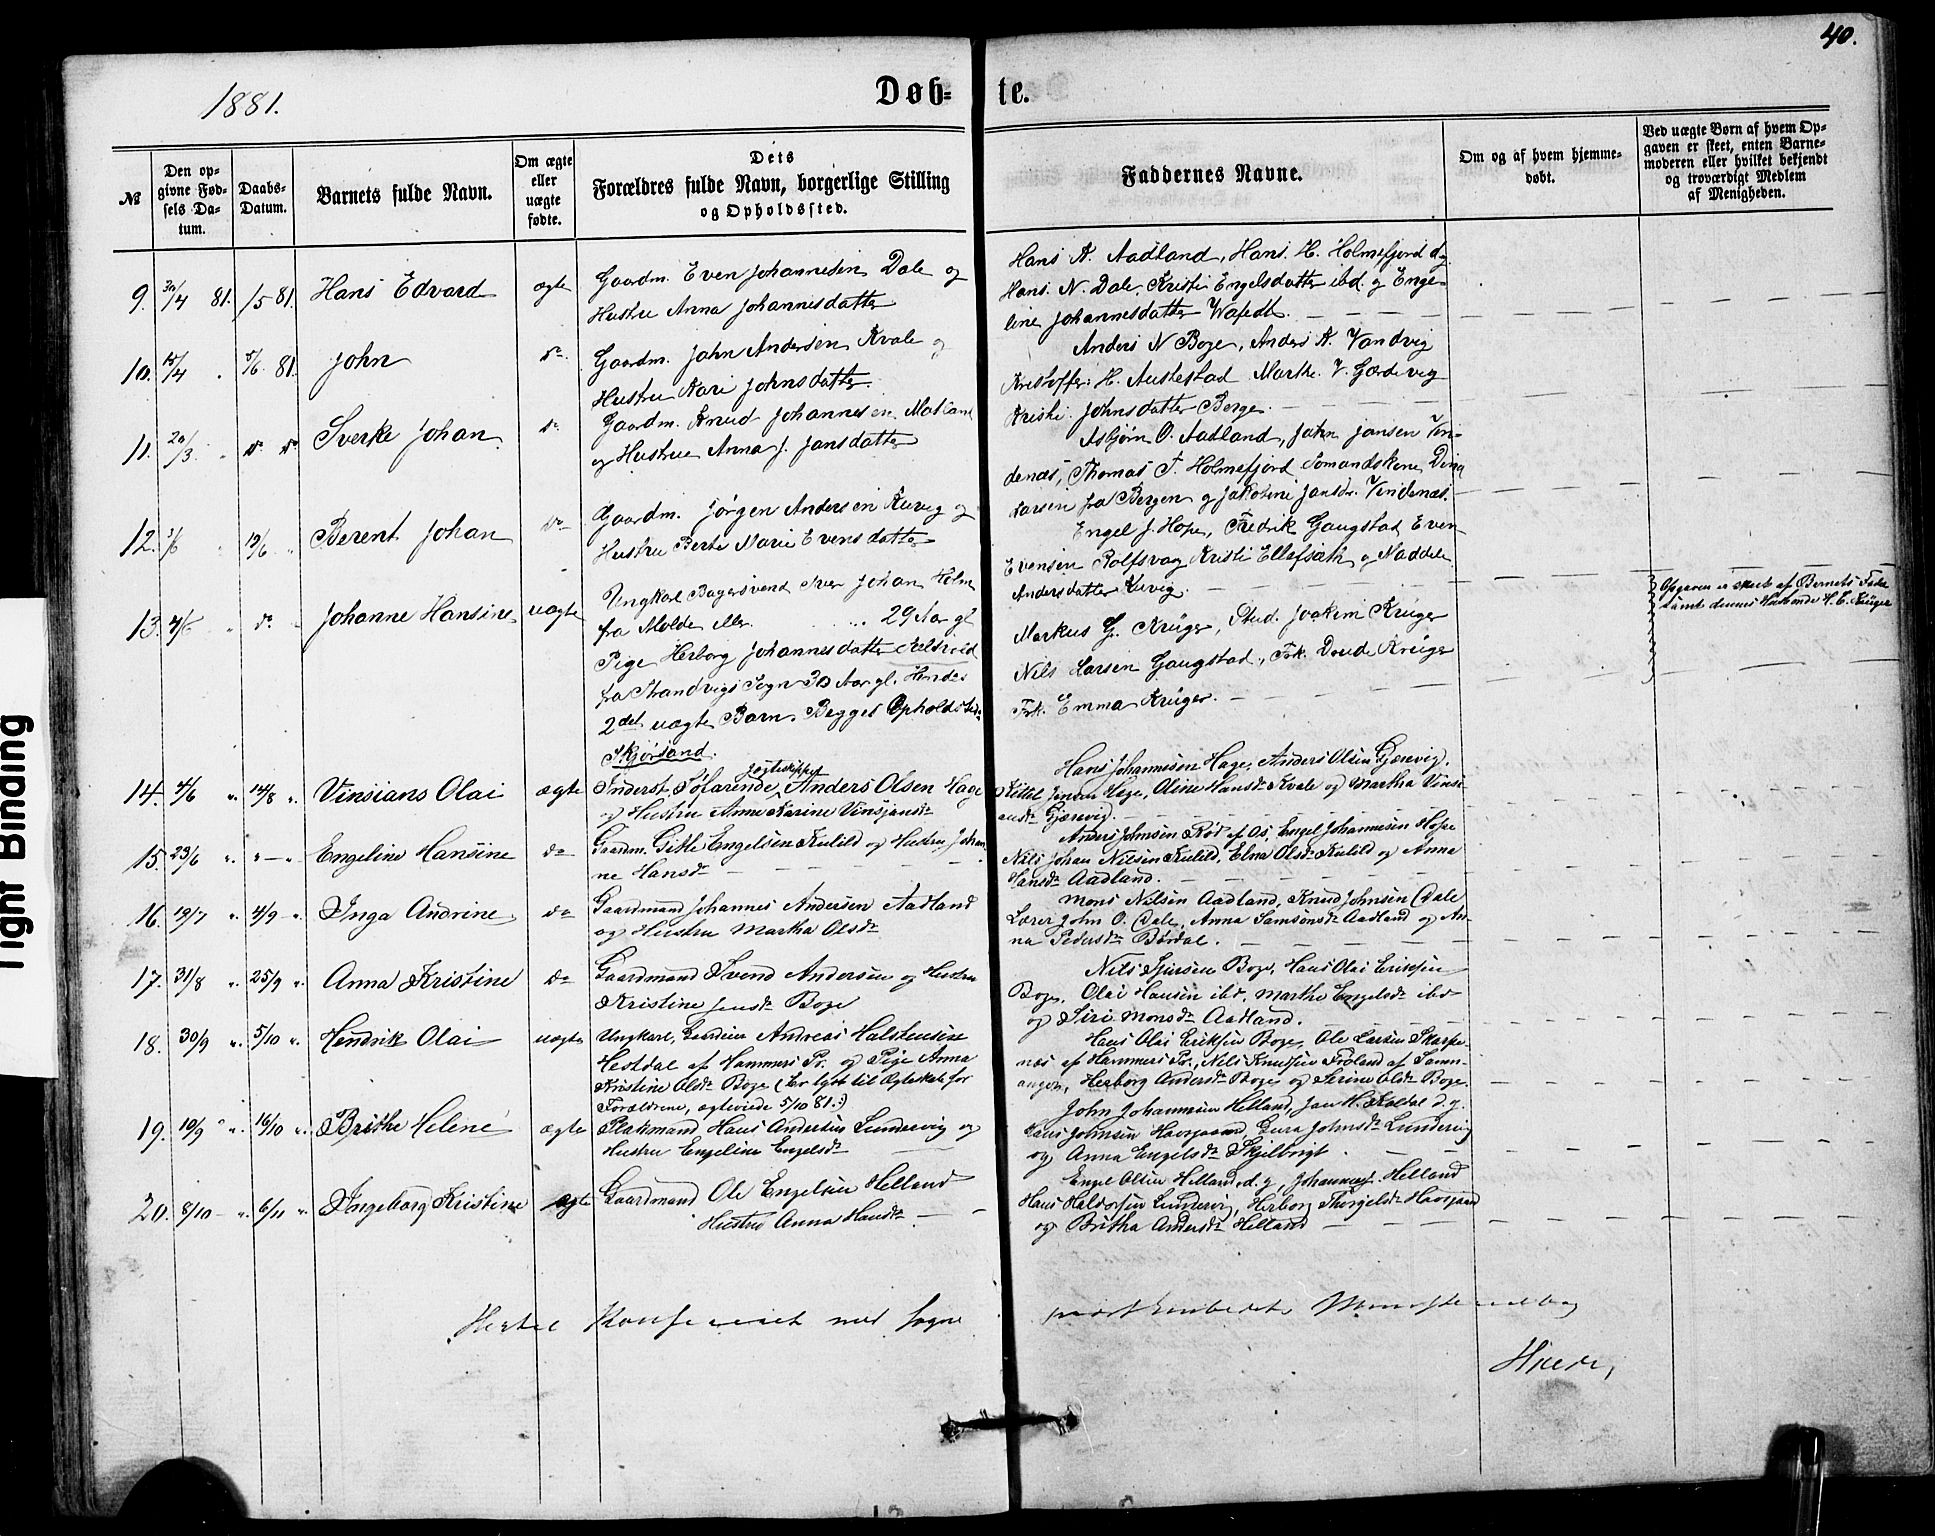 40.
1881.
Døb= te.
№
Den op-
givne Fød-
sels Da-
tum.
Daabs-
Datum.
Barnets fulde Navn.
Om ægte
eller
uægte
fødte.
Dets
Forældres fulde Navn, borgerlige Stilling
og Opholdssted.
Faddernes Navne.
Om og af hvem hjemme-
døbt.
Ved uægte Børn af hvem Op-
gaven er skeet, enten Barne-
moderen eller hvilket bekjendt
og troværdigt Medlem
af Menigheden.
9. 81. 1/5 81. Hans Edvard ægte
Gaardm. Even Johannesen Dale og
Hustru Anna Johannesdatter
Hans A. Aadland, Hans H. Holmefjord d.y.
Hans N. Dale, Kristi Engelsdatter ibd. og Enge-
line Johannesdatter
10. 15/4 5/6 81. John do
Gaardm. John Andersen Kvale og
Hustru Kari Johnsdatter
Anders N Boge, Anders A. Vandvig
Kristoffer H. Austestad Marthe V. Gjærdevig
Kristi Johnsdatter Berge.
11. 20/3 do do Sverke Johan do
Gaardm. Knud Johannesen
og Hustru Anna J. Jansdatter
Asbjørn O. Aadland, John Jansen Ven-
denæs, Thomas T. Holmefjord Sømandskone Dina
Larsen fra Bergen og Jakobine Jansdr. Vendenæs.
12. 1/6 19/6 Berent Johan do
Gaardm. Jørgen Andersen Kuvig og
Hustru Berte Marie Evensdatter
Engel J. Hope, Fredrik Gaugstad Even
Evensen Rolfsvaag Kristi og
Andersdatter Kuvig.
13. do Johanne Hansine uægte
Ungkarl Bagersvend Iver Johan Holm
fra Molde eller 29 Aar gl
Pige Herborg Johannesdatter
fra Strandvigs Sogn 30 Aar gl. Hendes
2det uægte Barn. Begges Opholdsted
Skjørsand.
Markus G. Krüger, Stud. Joakim Krüger
Nils Larsen Gaugstad, Frk. Drude Krüger
Frk. Emma Krüger.
Opgaven er skeet af Barnets Fader
samt dennes Husbonde H. C. Krüger
14. 4/6 14/8 Vinsians Olai ægte
Inderst, Søfarende Jægteskipper Anders Olsen Hage
og Hustru Anne Karine Vinsjansdr
Hans Johannesen Hage, Anders Olsen Gjærevig,
Kittel Jensen Hage, Oline Hansdr Kvale og Martha Vinsi-
ansdr Gjærevig.
15. 23/6 Engeline Hansine do
Gaardm. Gitle Engelsen Kulild og Hustru Johan-
ne Hansdr
Anders Johnsen Rød af Os, Engel Johannesen Hope
Nils Johan Nilsen Kulild, Elna Olsdr Kulild og Anna
Hansdr Aadland.
16. 19/7 4/9 Inga Andrine do
Gaardmand Johannes Andersen Aadland
og Hustru Martha Olsdr
Mons Nilsen Aadland, Knud Johnsen Dale
Lærer John O. Dale, Anna Samsonsdr Aadland og An-
na Pedersdr Børdal.
17. 31/8 25/9 Anna Kristine do
Gaardmand Svend Andersen og Hustru
Kristine Jensdr Boge
Nils Sjursen Boge, Hans Olai Eriksen
Boge, Olai Hansen ibd. Marthe Engelsdr ibd
og Siri Monsdr Aadland.
18. 30/9 5/10 Hendrik Olai uægte
Ungkarl, Gaardm Andreas Halstensen
Hestdal af Hammers Pr. og Pige Anna
Kristine Olsdr Boge (Før lyst til Ægteskab for
Forældrene, ægteviede 5/10 81.)
Hans Olai Eriksen Boge, Ole Larsen Skarpe-
næs af Hammers Pr., Nils Knudsen Frøland af Samn-
anger, Herborg Andersdr Boge og Serine Olsdr Boge.
19. 10/9 16/10 Brithe Helene ægte
Pladsmand Hans Andersen Lundervig og
Hustru Engeline Engelsdr
John Johannesen Helland, Jan H. Koldal d. y.
Hans Johnsen Havsgaard, Guro Johnsdr Lundervig
og Anna Engelsdr Skjelbreit
20. 8/10 6/11 Ingeborg Kristine ægte
Gaardmand Ole Engelsen Helland
Hustru Anna Hansdr
Engel Olsen Helland d. y., Johannes Helland
Hans Haldorsen Lundervig, Herborg Thorgilsdr Havsgaard
og Britha Andersdr Helland
Hertil Konfereret med Sogne præst Embedets Ministerialbog
Tight Binding